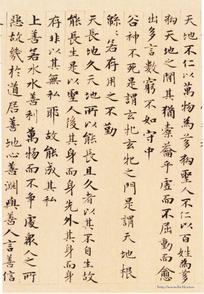 天地不仁以萬物為芻狗聖人不仁以百姓為芻
狗天地之間其猶橐籥乎虛而不屈動而愈
出多言數窮不如守中
谷神不死是謂玄牝玄牝之門是謂天地根
綿綿若存用之不勤
天長地久天地所以能長且久者以其不自生故
能長生是以聖人後其身而身先外其身而身
存非以其無私耶故能成其私
上善若水水善利萬物而不爭處衆人之所
惡故幾於道居善地心善淵與善人言善信